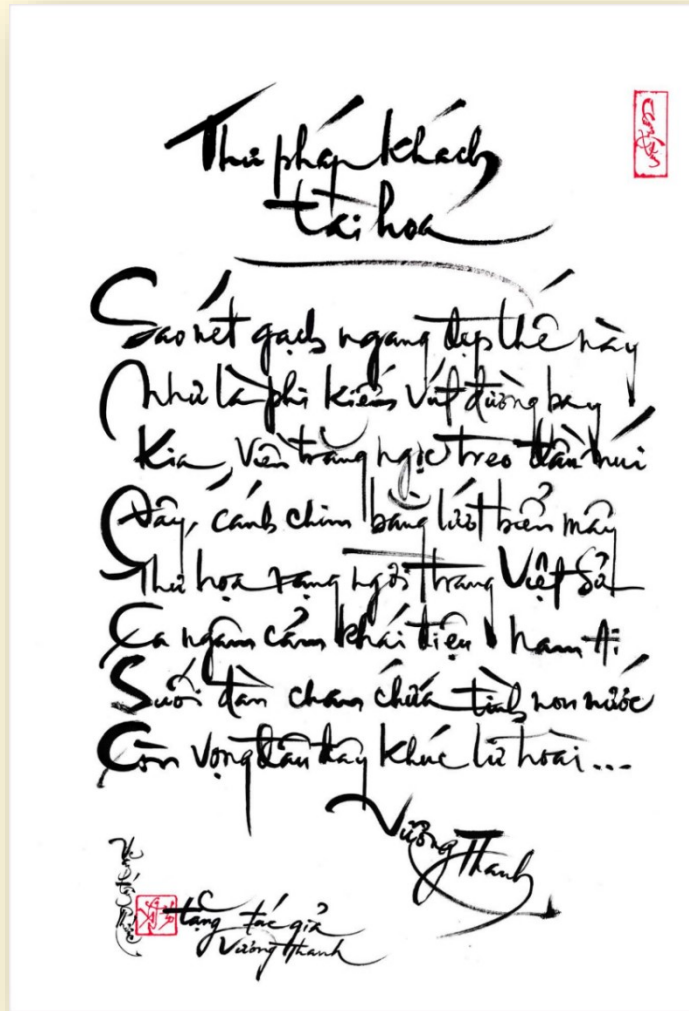 Thư pháp khách
tài hoa
Sao nét gạch ngang đẹp thế này
Như là phi kiếm vút đường bay
Kia, viên trăng ngọc treo đầu núi
Đây, cánh chim bằng lướt biển mây
Thư họa rạng ngời trang Việt Sử
Ca ngâm cảm khái điệu Nam Ai
Suối đàn chan chứa tình non nước
Còn vọng đâu đây khúc lữ hoài...
Vương Thanh
tặng tác giả
Vương Thanh